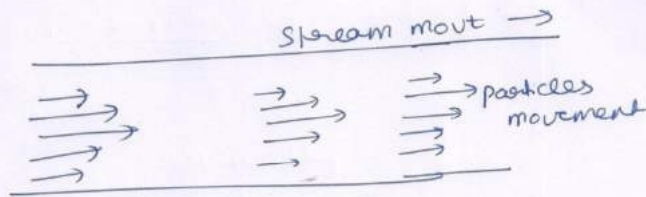 Stream movt →
particles
movement